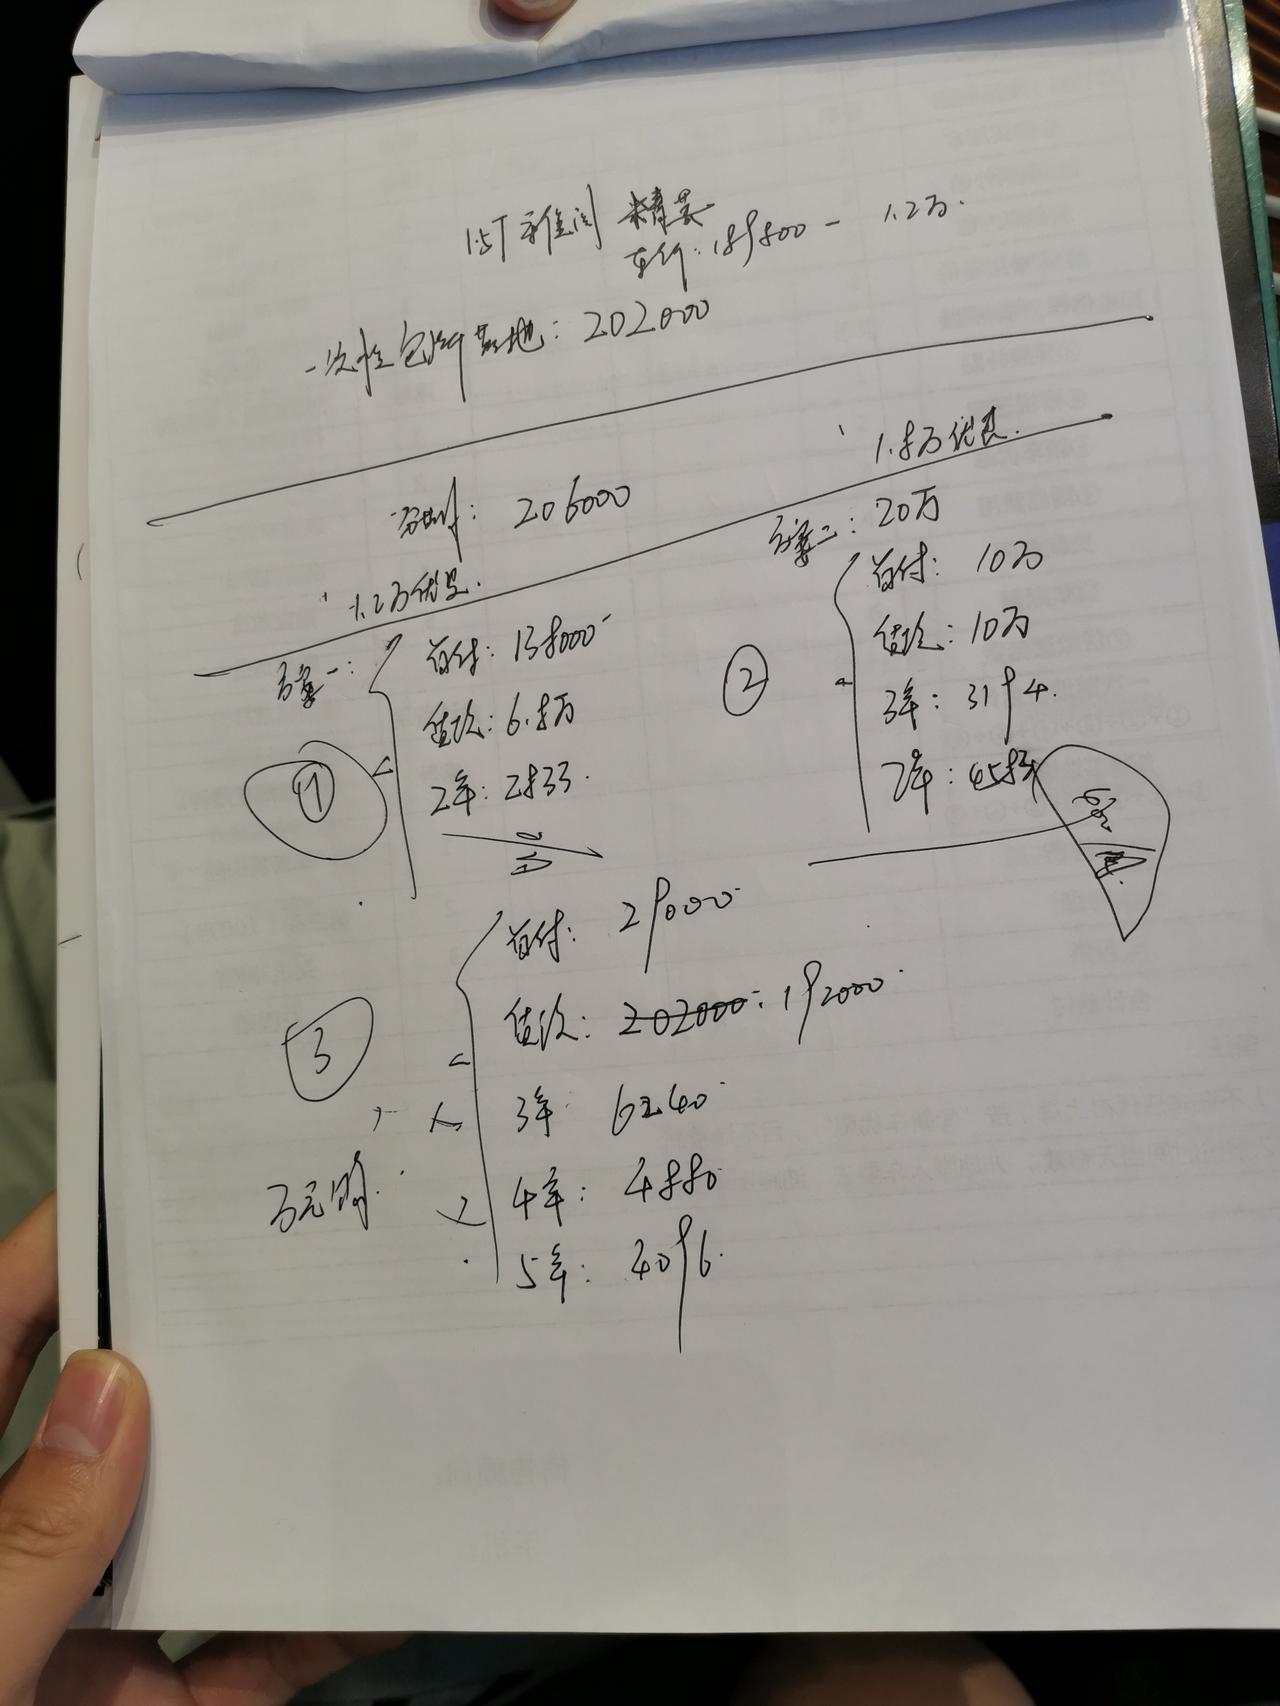 1.5T 雅阁 精英
车价: 189800 - 1.2万.
一次性包牌落地: 202000
分期: 206000
1.2万优惠.
方案一:
①
首付: 138000
贷款: 6.8万
2年: 2833.
1.8万优惠.
方案二: 20万
②
首付: 10万
贷款: 10万
3年: 3194.
2年: 4583
3
首付: 29000
贷款: 202000: 192000.
3年 6240
4年: 4880
5年: 4096.